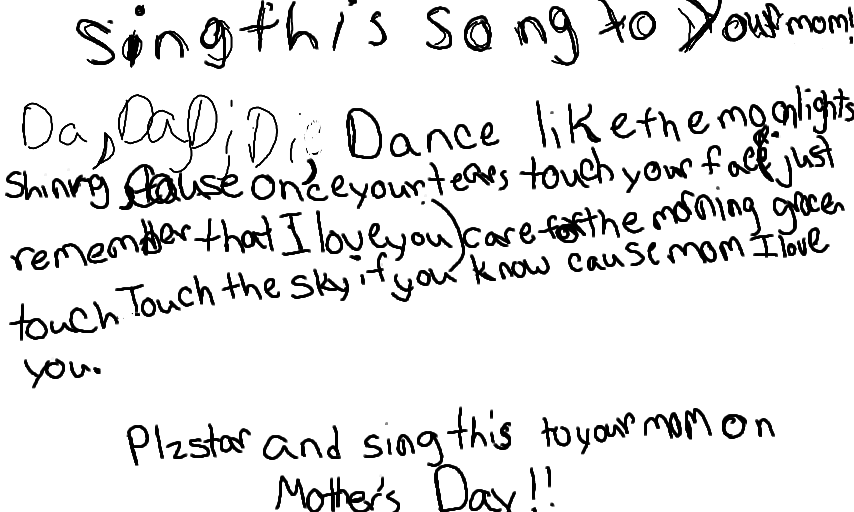 Sing this song to your mom!
Da, Da, Di, Di, Dance like the moonlights
shining, cause once your tears touch your face just
remember that I love you) care for the morning grace
touch Touch the sky if you know cause mom I love
you.
Plz star and sing this to your mom on
Mother's Day!!